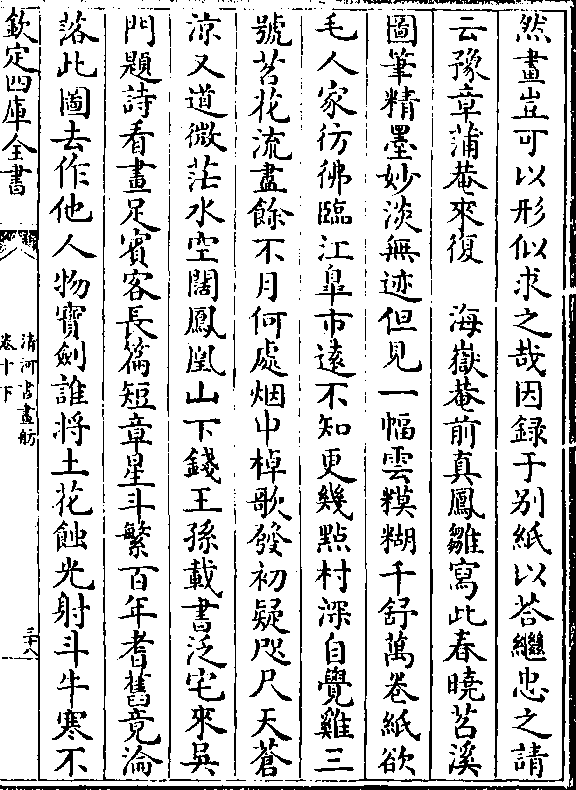 然畫豈可以形似求之哉因録于别紙以荅繼忠之請
云豫章蒲菴來復　海嶽菴前真鳳雛寫此春曉苕溪
圖筆精墨妙淡無迹但見一幅雲糢糊千舒萬卷紙欲
毛人家彷彿臨江臯市遠不知更幾點村深自覺雞三
號苕花流盡餘不月何處烟中棹歌發初疑咫尺天蒼
凉又道微茫水空闊鳳凰山下錢王孫載書泛宅來吳
門題詩看畫足賓客長篇短章星斗繁百年耆舊竟淪
落此圖去作他人物寶劍誰將土花蝕光射斗牛寒不
欽定四庫全書
清河書畫舫
卷十下
三十八